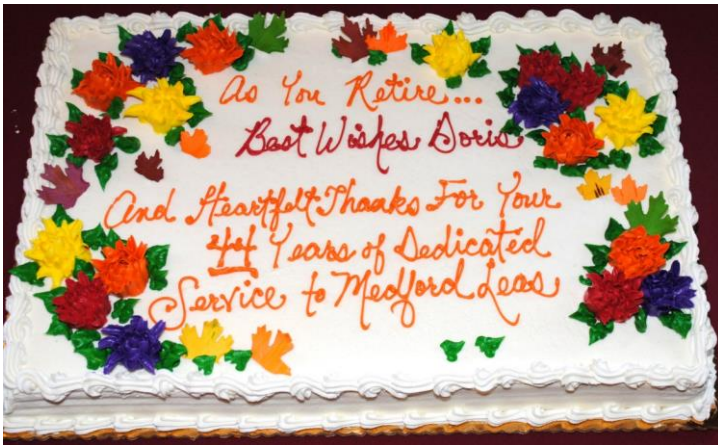 As You Retire...
Best Wishes Doris
And Heartfelt Thanks For Your
44 Years of Dedicated
Service to Medford Leas